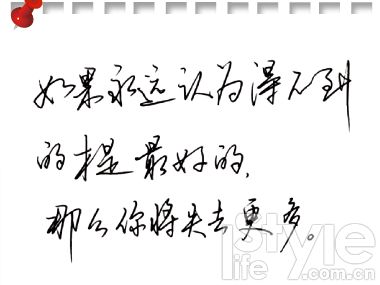 如果永远认为得不到
的才是最好的,
那么你将失去更多。
iStyle
life.com.cn